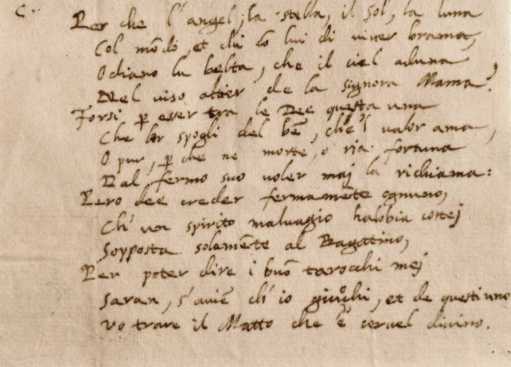 Per che l'angel, la stella, il sol, la luna
Col módo, et chi có lui di viver brama,
Odiano la belta, che il ciel aduna
Nel viso altier de la signora Mama?
Forsi p esser tra le Dee questa una
Che lor spogli del bé, ch'el valor ama,
O pur, p che ne morte, o ria fortuna
Dal fermo suo voler maj la richiama:
Pero dee creder fermaméte ognuno,
Ch'un spirito malvagio habbia costej
Sopposta solaméte al Bagattino,
Per poter dire i buó tarocchi mej
Saran, s'avié ch'io giuochi, et de questi uno
Vo trare il Matto che e' cervel divino.